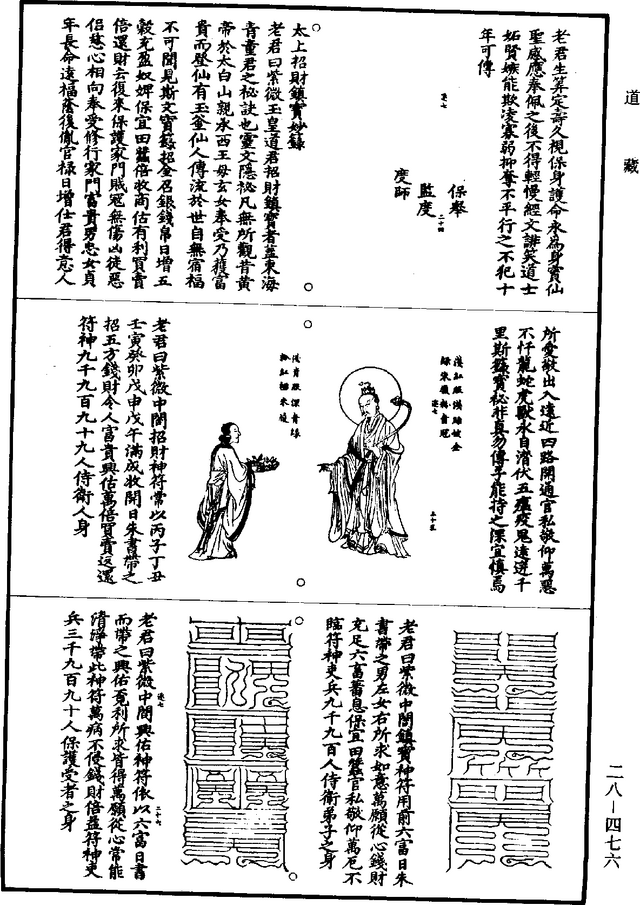 道藏
老君生算定壽久視保身護命永為身寶仙
聖感應奉佩之後不得輕慢經文誹笑道士
妬賢嫉能欺凌寡弱抑奪不平行之不犯十
年可傳
二十四
保舉
監度
度師
太上招財鎮寶妙籙
老君曰紫微玉皇道君招財鎮寶者蓋東海
青童君之秘訣也靈文隱祕凡無所觀昔黃
帝於太白山親承西王母玄女奉受乃獲富
貴而登仙有玉金仙人傳流於世自無宿福
不可聞見斯文寶籙招金召銀錢帛日增五
穀充盈奴婢保宜田蠶倍收商估有利買賣
倍還財去復來保護家門賊寇無傷凶徒惡
侶慈心相向奉受修行家門富貴男忠女貞
年長命遠福蔭後胤官祿日增仕君得意人
所愛敬出入遠近四路開通官私敬仰萬惡
不忏龍蛇虎獸永自潛伏五瘟疫鬼遠迸千
里斯籙寶祕非真勿傳子能持之深宜慎焉
淺紅服淺緋帔金
緣朱履執青冠
二十五
淺青服深青緣
粉紅裙木履
老君曰紫微中閣招財神符常以丙子丁丑
壬寅癸卯戊申戊午滿成收開日朱書帶之
招五方錢財令人富貴興估萬倍買賣迴還
符神九千九百九十九人侍衛人身
老君曰紫微中閣鎮寶神符用前六富日朱
書帶之男左女右所求如意萬願從心錢財
充足六畜蕃息保宜田蠶官私敬仰萬厄不
臨符神吏兵九千九百人侍衛弟子之身
老君曰紫微中閣興估神符依以六富日書
二十六
而帶之興估覓利所求皆得萬願從心常能
清淨帶此神符萬病不侵錢財倍益符神吏
兵三千九百九十人保護受者之身
二八—四七六